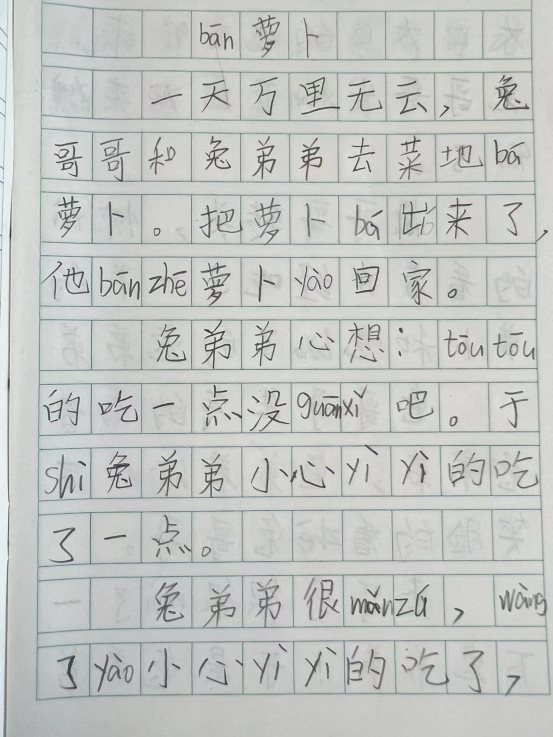 bān萝卜
一天万里无云，兔
哥哥和兔弟弟去菜地bá
萝卜。把萝卜bá出来了，
他bānzhē萝卜yào回家。
兔弟弟心想：tōutōu
的吃一点没guānxì吧。于
shì兔弟弟小心yìyì的吃
了一点。
兔弟弟很mǎnzú，wàng
了yào小心yìyì的吃了，